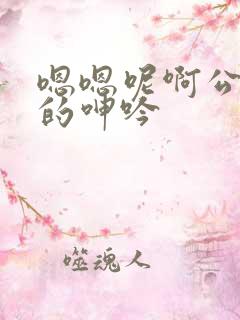 嗯嗯呢啊公
的呻吟
噬魂人